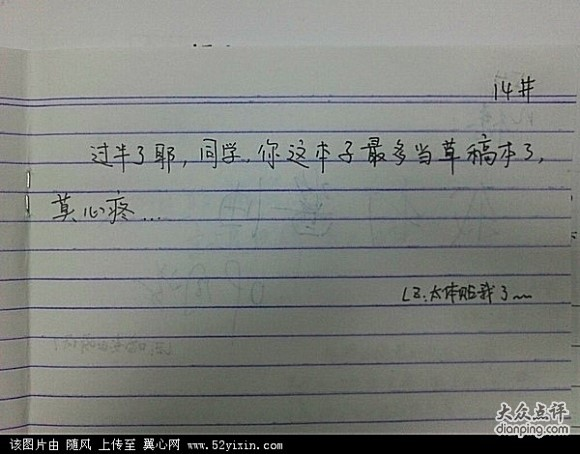 14#
过半了耶，同学，你这本子最多当草稿本了，
莫心疼...
LZ:太体贴我了~~
大众点评
dianping.com
该图片由 随风 上传至 翼心网 www.52yixin.com